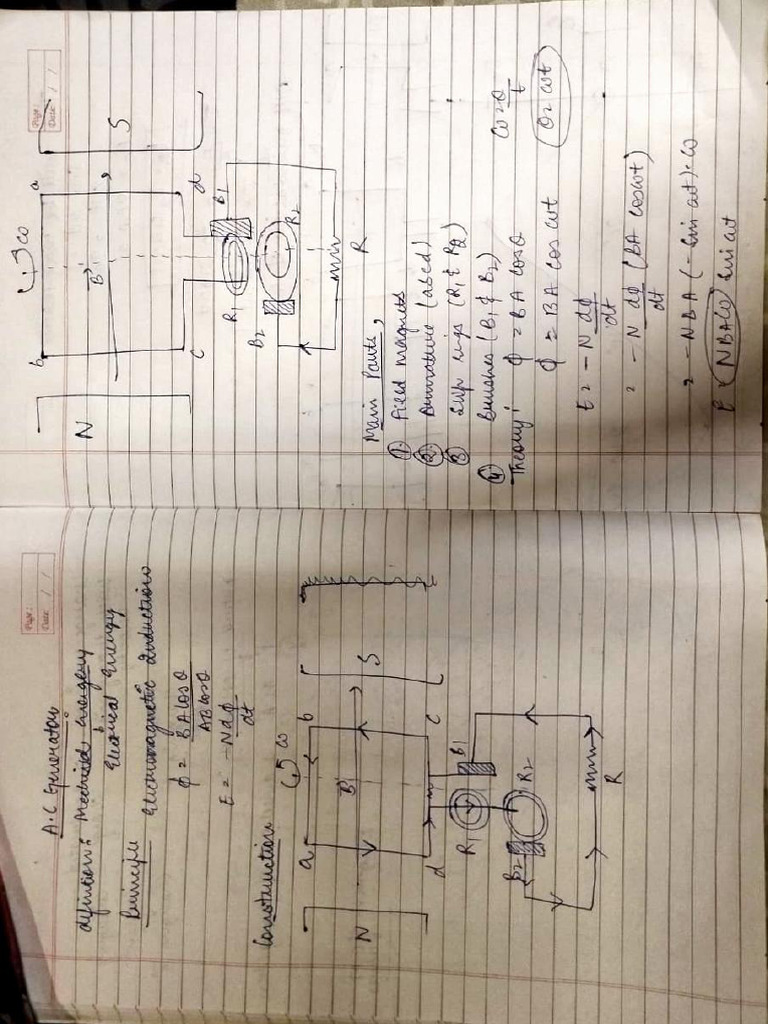 Page:
Date: / /
A.C Generator
definition: Mechanical energy
Electrical Energy
Principle
Electromagnetic Induction
ϕ = BA cosθ
AB cosθ
E = - N dϕ/dt
Construction
ω
a b
N B⃗ S
d c
R1 B1
B2 R2
R
Page:
Date: / /
ω
b a
N B⃗ S
c d
R1 B1
B2 R2
R
Main Parts,
① Field magnets
② Armature (abcd)
③ Slip rings (R1 & R2)
④ Brushes (B1 & B2)
Theory: ϕ = BA cosθ
ω = θ/t
ϕ = BA cos ωt
θ = ωt
E = - N dϕ/dt
= - N dϕ/dt (BA cosωt)
= - NBA (- sin ωt) × ω
E = NBAω sin ωt